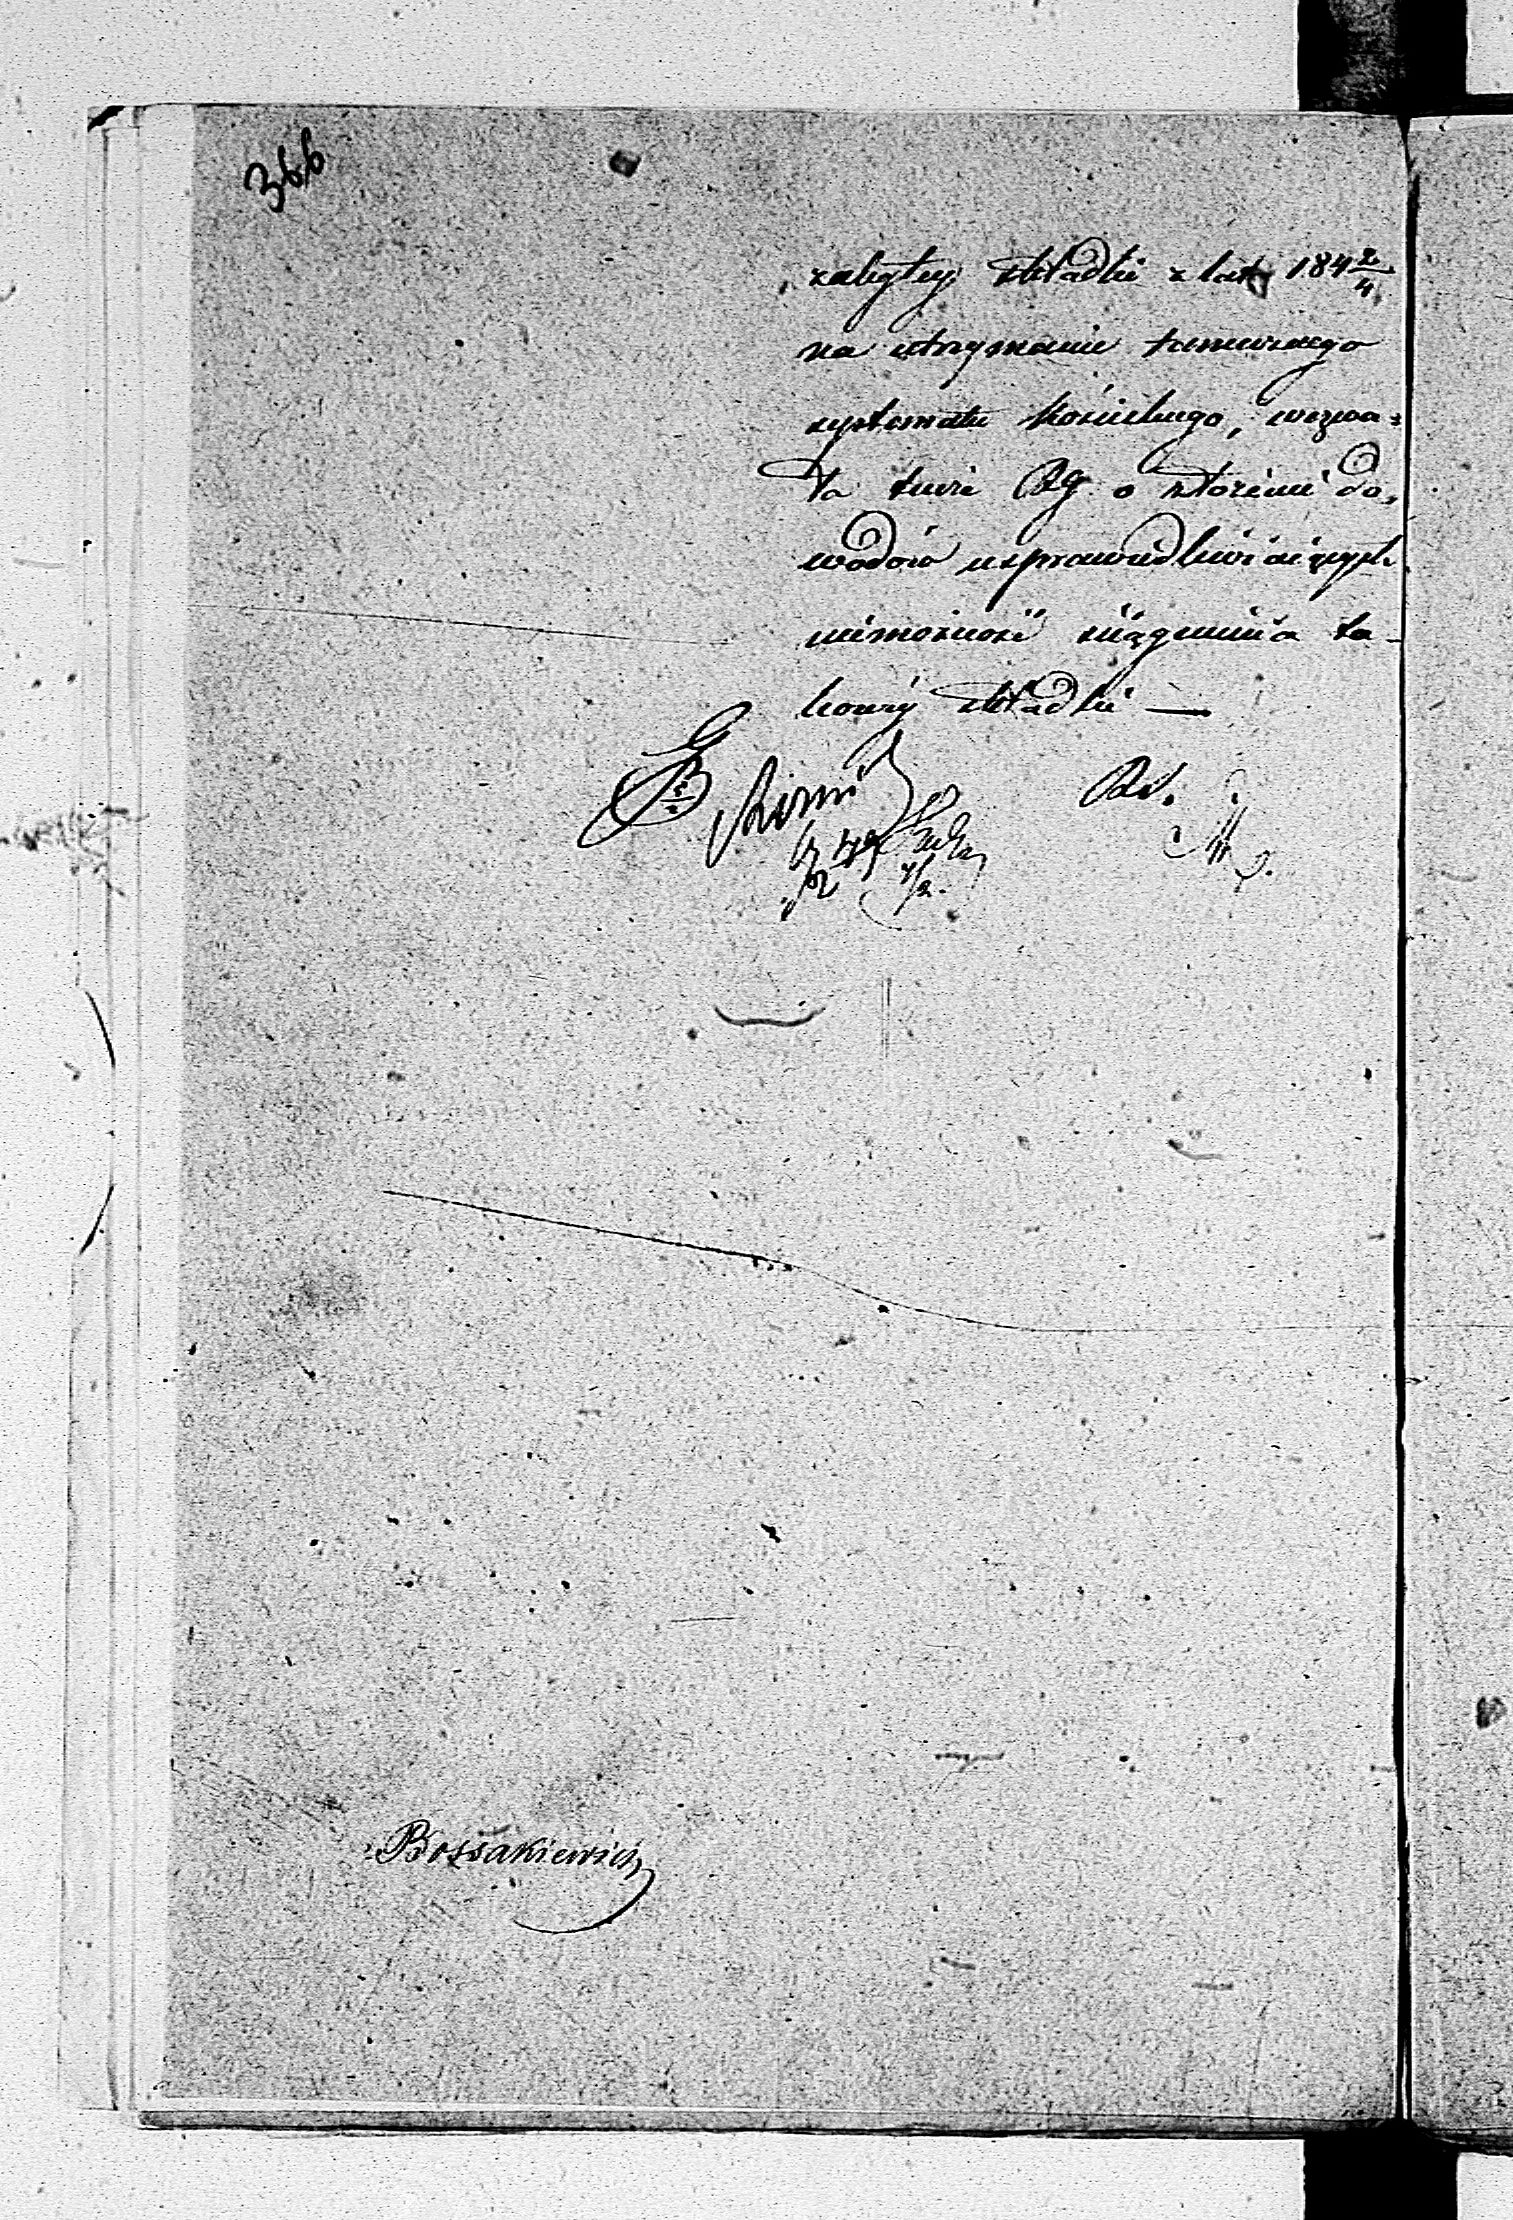 366
zaległej składki z lat 184 2/4
na utrzymanie tamecznego
systematu kościelnego, wezwa=
ła tuwże RG o złożenie do,
wodów usprawiedliwiaiących
niemożność ściągnienia ta-
kowéj składki —
Bossakiewicz